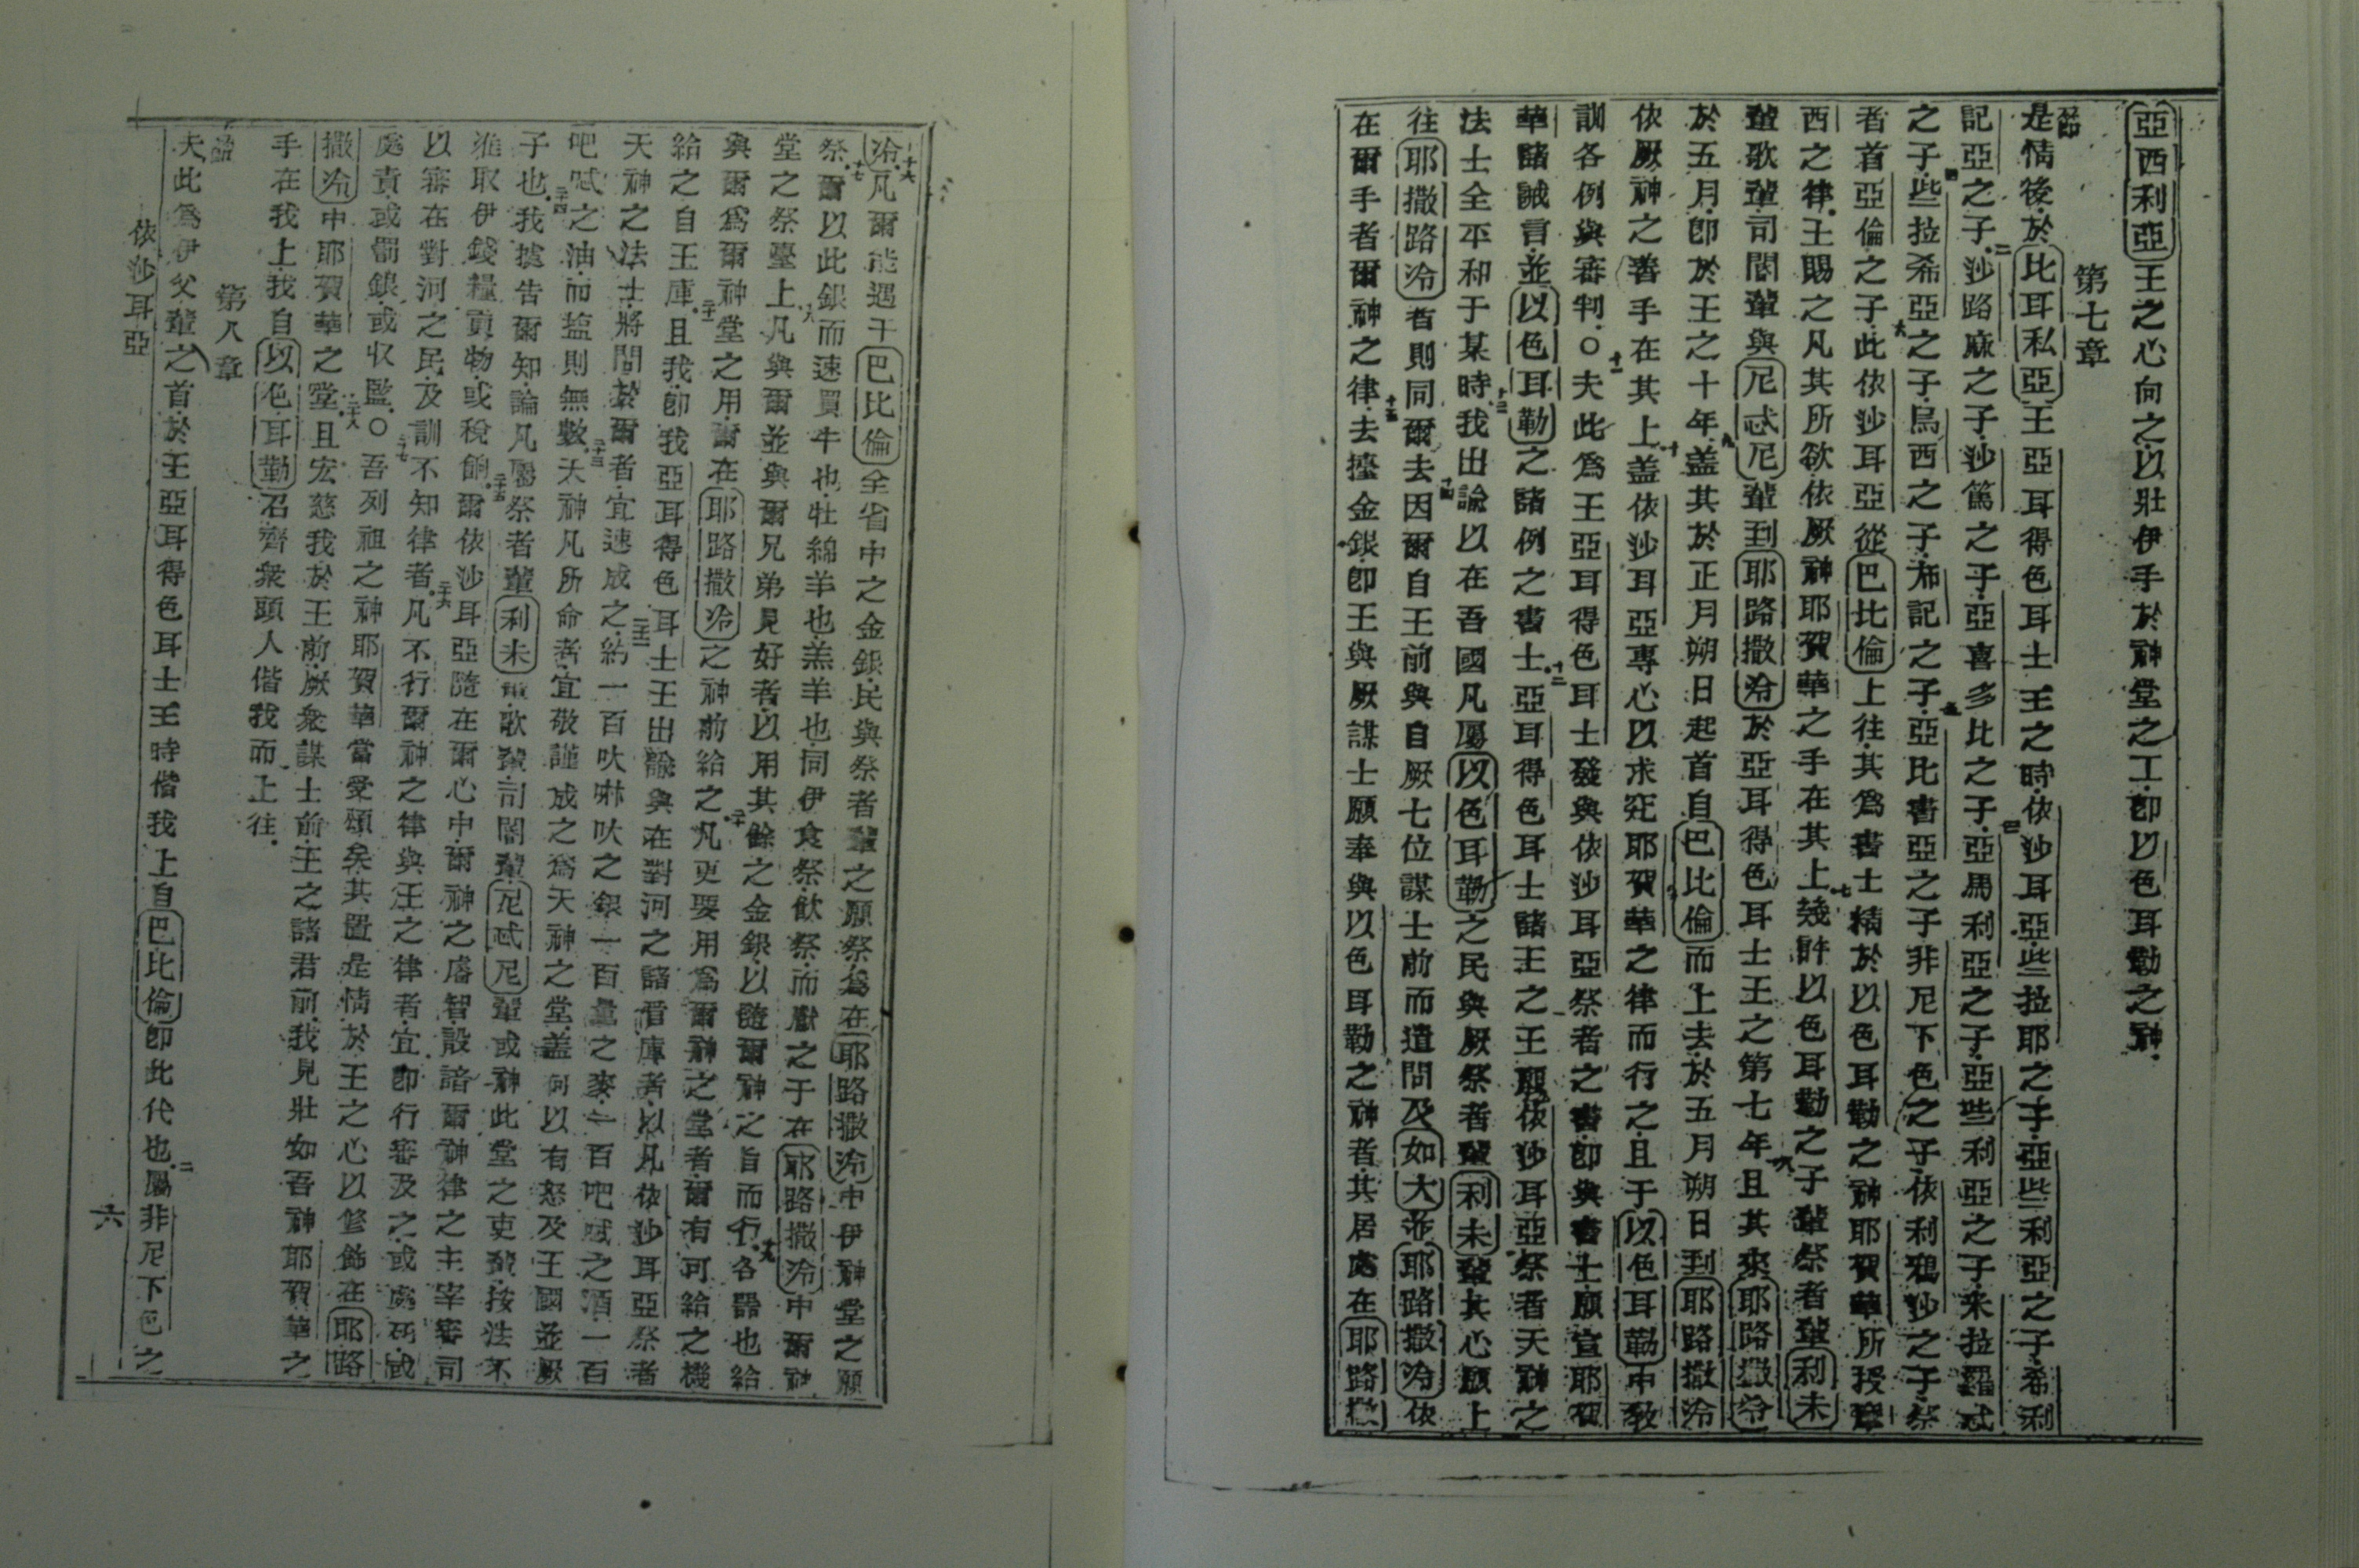 亞西利亞王之心向之以壯伊手於神堂之工卽以色耳勒之神
第七章
是情後於比耳私亞王亞耳得色耳士王之時依沙耳亞些拉耶之子亞些利亞之子希利
記亞之子二沙路麻之子沙篤之子亞喜多比之子三亞馬利亞之子亞些利亞之子米拉羅忒
之子四些拉希亞之子烏西之子布記之子五亞比書亞之子非尼下色之子依利鴉沙之子祭
者首亞倫之子六此依沙耳亞從巴比倫上往其爲書士精於以色耳勒之神耶賀華所授摩
西之律王賜之凡其所欲依厥神耶賀華之手在其上七幾許以色耳勒之子輩祭者輩利未
輩歌輩司閽輩與尼忒尼輩到耶路撒冷於亞耳得色耳士王之第七年八且其來耶路撒冷
於五月卽於王之十年九盖其於正月朔日起首自巴比倫而上去於五月朔日到耶路撒冷
依厥神之善手在其上十盖依沙耳亞專心以求究耶賀華之律而行之且于以色耳勒中敎
訓各例與審判〇十一夫此爲王亞耳得色耳士發與依沙耳亞祭者之書卽與書士願宣耶賀
華諸誡言並以色耳勒之諸例之書士十二亞耳得色耳士諸王之王願依沙耳亞祭者天神之
法士全平和于某時十三我出諭以在吾國凡屬以色耳勒之民與厥祭者輩利未輩其心願上
往耶撒路冷者則同爾去十四因爾自王前與自厥七位謀士前而遣問及如大並耶路撒冷依
在爾手者爾神之律十五去擡金銀卽王與厥謀士願奉與以色耳勒之神者其居處在耶路撒
冷十六凡爾能遇于巴比倫全省中之金銀民與祭者輩之願祭爲在耶路撒冷中伊神堂之願
祭十七爾以此銀而速買牛也牡綿羊也羔羊也同伊食祭飲祭而獻之于在耶路撒冷中爾神
堂之祭臺上十八凡與爾並與爾兄弟見好者以用其餘之金銀以隨爾神之旨而行十九各器也給
與爾爲爾神堂之用爾在耶路撒冷之神前給之二十凡更要用爲爾神之堂者爾有可給之機
給之自王庫二十一且我卽我亞耳得色耳士王出諭與在對河之諸看庫者以凡依沙耳亞祭者
天神之法士將問於爾者宜速成之二十二約一百吠啉吠之銀一百量之麥一百吧忒之酒一百
吧忒之油而鹽則無數二十三天神凡所命者宜敬謹成之爲天神之堂盖何以有怒及王國並厥
子也二十四我據告爾知論凡屬祭者輩利未輩歌輩司閽輩尼忒尼輩或神此堂之吏輩按法不
准取伊錢糧貢物或稅餉二十五爾依沙耳亞隨在爾心中爾神之睿智設諳爾神律之主宰審司
以審在對河之民及訓不知律者二十六凡不行爾神之律與王之律者宜卽行審及之或處死或
處責或罰銀或收監〇二十七吾列祖之神耶賀華當受頌矣其置是情於王之心以修飾在耶路
撒冷中耶賀華之堂二十八且宏慈我於王前厥衆謀士前王之諸君前我見壯如吾神耶賀華之
手在我上我自以色耳勒召齊衆頭人偕我而上往
第八章
夫此爲伊父輩之首於王亞耳得色耳士王時偕我上自巴比倫卽此代也二屬非尼下色之
依沙耳亞
六